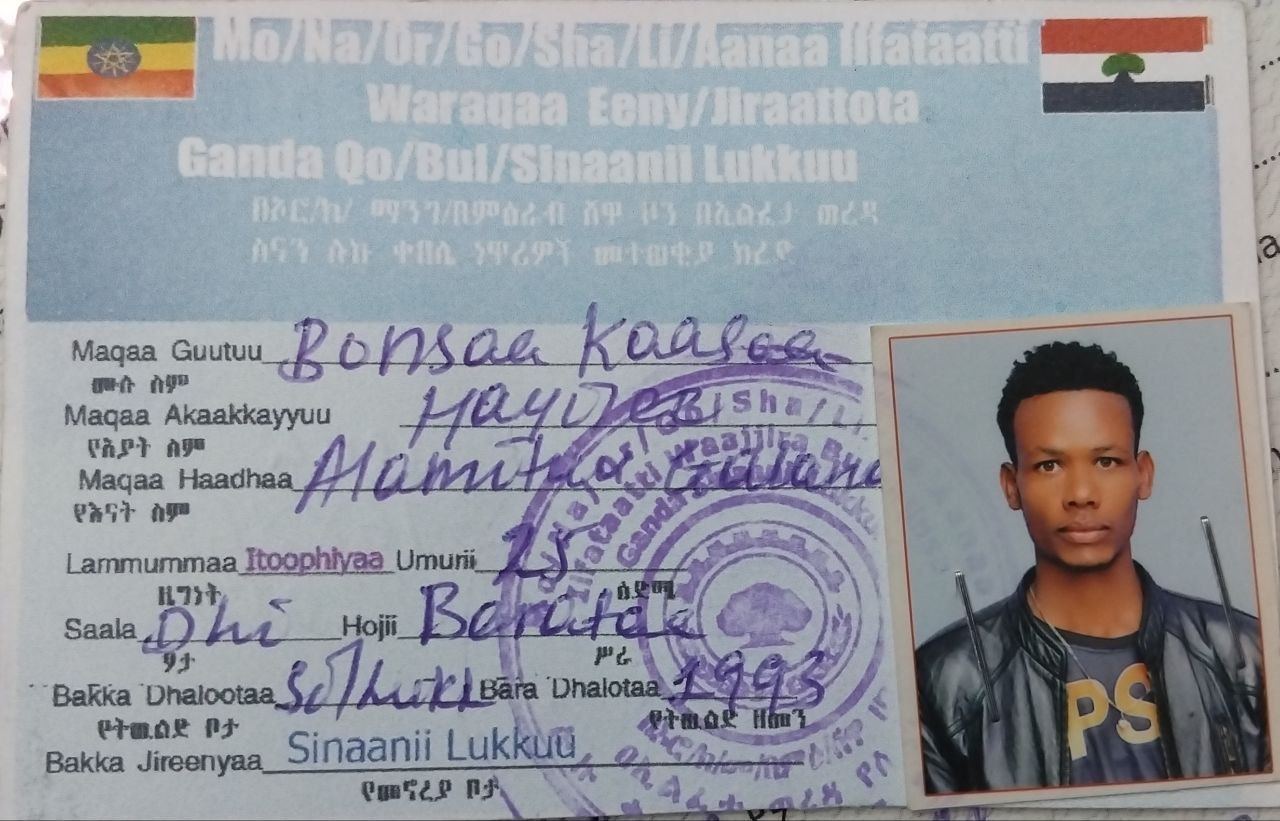 Mo/Na/Or/Go/Sha/Li/Aanaa Ilfataatti
Waraqaa Eeny/Jiraattota
Ganda Qo/Bul/Sinaanii Lukkuu
በኦሮ/ክ/ ማንግ/በምዕራብ ሸዋ ዞን በኢልፈታ ወረዳ
ስናን ሉኩ ቀበሌ ነዋሪዎች መተወቂያ ክረድ
Maqaa Guutuu Bonsaa Kaasaa
ሙሉ ስም
Maqaa Akaakkayyuu
የአያት ስም
Maqaa Haadhaa
የእናት ስም
Lammummaa Itoophiyaa Umurii 25
ዜግነት ዕድሜ
Saala Dhi Hojii Barataa
ፆታ ሥራ
Bakka Dhalootaa Bara Dhalotaa 1993
የትዉልድ ቦታ የትዉልድ ዘመን
Bakka Jireenyaa Sinaanii Lukkuu
የመኖሪያ ቦታ
PS